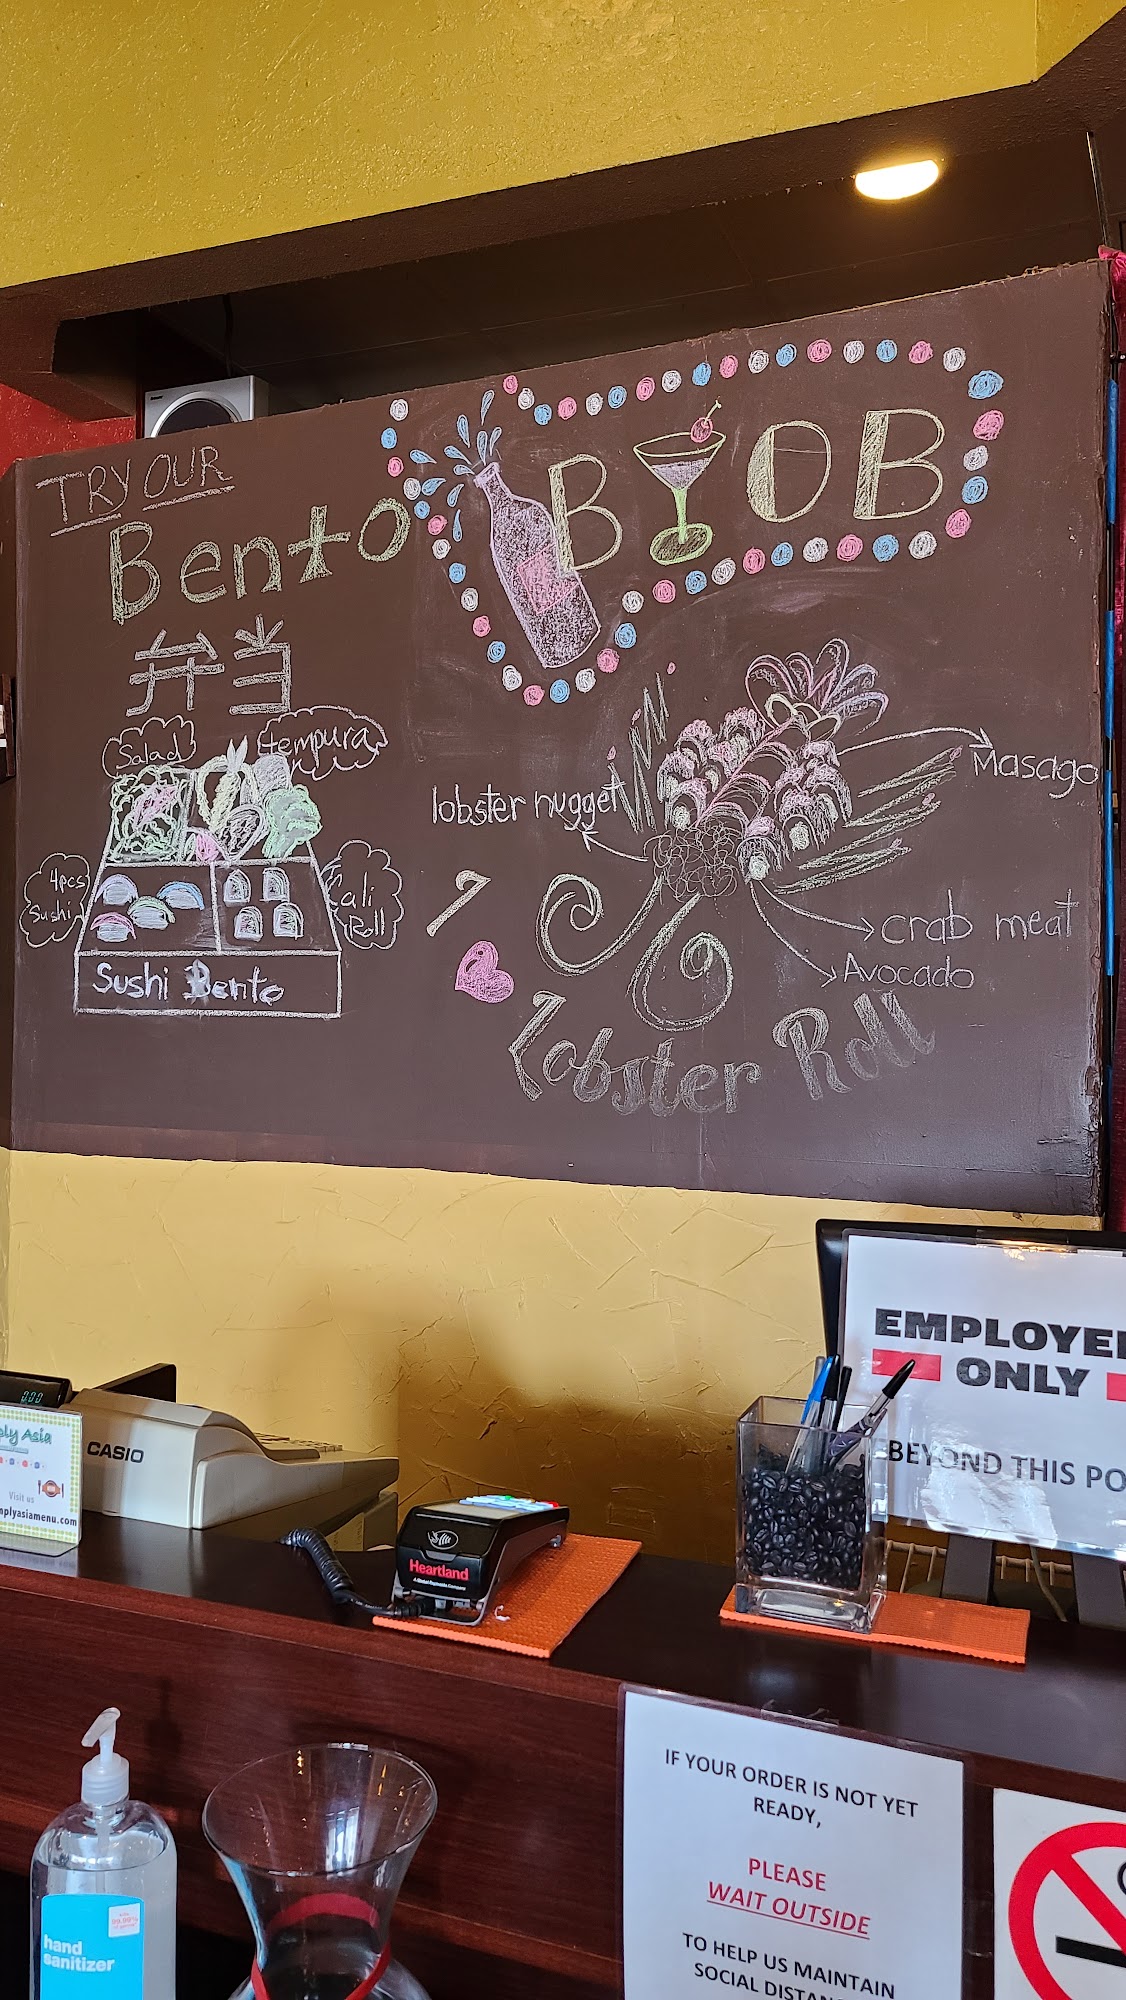 TRY OUR
Bento
弁当
BYOB
Salad
tempura
4pcs
Sushi
Cali
Roll
Sushi Bento
lobster nugget
Masago
crab meat
Avocado
I
Lobster Roll
EMPLOYE
ONLY
BEYOND THIS PO
0.00
CASIO
ply Asia
Visit us
mplyasiamenu.com
Heartland
A Global Payments Company
IF YOUR ORDER IS NOT YET
READY,
PLEASE
WAIT OUTSIDE
TO HELP US MAINTAIN
SOCIAL DISTAN
hand
sanitizer
99.99%